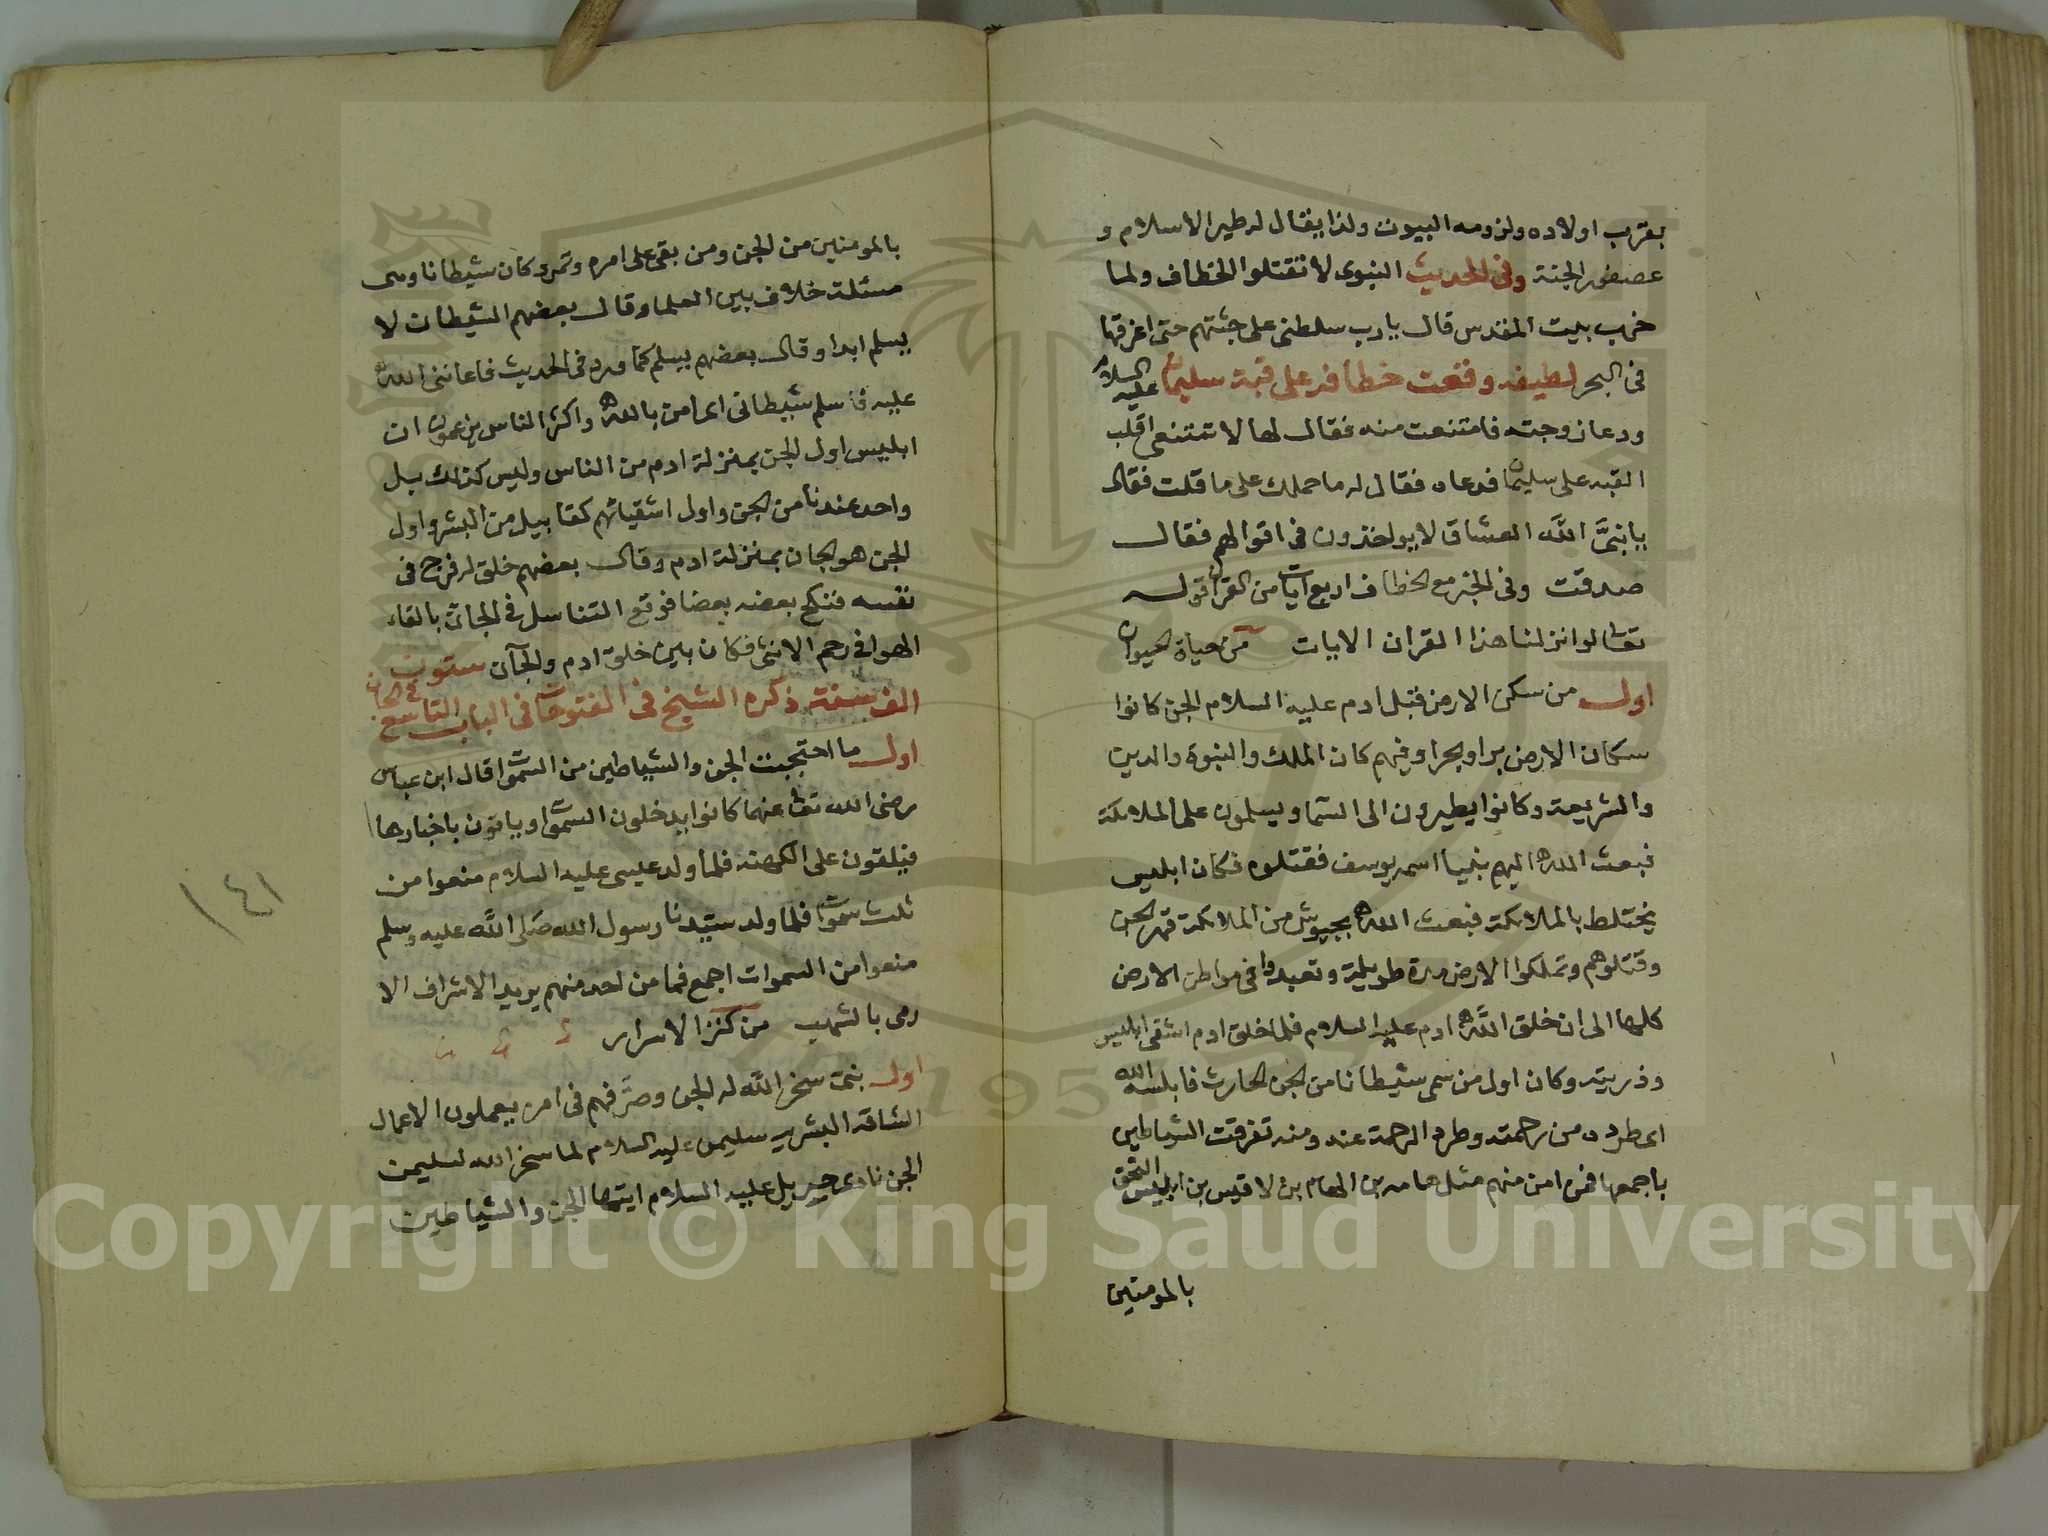 بقرب اولاده ولزومه البيوت ولذا يقال له طير الاسلام و
عصفور الجنة وفى الحديث النبوى لا تقتلوا الخطاف ولما
خرب بيت المقدس قال يا رب سلطنى على جثتهم حتى اغرقها
فى البحر لطيفه وقعت خطافه على قبة سليمان عليه السلام
ودعا زوجته فامتنعت منه فقال لها لا تمتنعى اقلب
القبه على سليمان فدعاه فقال له ما حملك على ما قلت فقال
يا نبىَّ اللَّه العشاق لا يواخذون فى اقوالهم فقال
صدقت وفى الخبر مع الخطاف اربع آيات من القران قوله
تعا لو انزلنا هذا القران الايات من حياة الحيوان
اول من سكن الارض قبل ادم عليه السلام الجن كانوا
سكان الارض برا وبحرا وفيهم كان الملك والنبوة والدين
والشريعة وكانوا يطيرون الى السَّما ويسلمون على الملائكة
فبعث الله اليهم نبيا اسمه يوسف فقتلوه فكان ابليس
يختلط بالملائكة فبعث الله بجيوش من الملائكة قهر الجن
وقتلوهم وتملكوا الارض مدة طويلة وتعبدوا فى مواطن الارض
كلها الى ان خلق اللَّه ادم عليه السلام فلما خلق ادم اشقى ابليس
وذريته وكان اول من سمى شيطانا من الجن الحارث فابلسه الله
اى طرده من رحمته وطرد الرحمة عنه ومنه تفرقت الشياطين
باجمعها فمن امن منهم مثل هامه بن الهام بن لاقيس بن ابليس التحق
بالمومنين
بالمومنين من الجن ومن بقى على امره وتمرد كان شيطانا وهى
مسئلة خلاف بين العلما وقال بعضهم الشيطان لا
يسلم ابدا وقال بعضهم يسلم كما ورد فى الحديث فاعاننى الله
عليه فاسلم شيطانى اى امن بالله واكثر الناس يزعمون ان
ابليس اول الجن بمنزلة ادم من الناس وليس كذلك بل
واحد عندنا من الجن واول اشقيائهم كقابيل من البشر واول
الجن هو الجان بمنزلة ادم وقال بعضهم خلق له فرج فى
نفسه فنكح بعضه بعضا فوقع التناسل فى الجان بالقاء
الهوا فى رحم الانثى فكان بين خلق ادم والجآن ستون
الف سنة ذكره الشيخ فى الفتوحات فى الباب التاسع فى الجان
اول ما احتجبت الجن والشياطين من السَّموات قال ابن عباس
رضى الله تعا عنهما كانوا يدخلون السموات وياتون باخبارها
فيلقون على الكهنه فلما ولد عيسى عليه السلام منعوا من
ثلث سموات فلما ولد سيّدنا رسول الله صَلى اللَّه عليه وسلم
منعوا من السموات اجمع فما من احد منهم يريد الاشراف الا
رمى بالشهب من كنز الاسرار
اول بنى سخر اللَّه له الجن وصرَّفهم فى امره يعملون الاعمال
الشاقه البشريه سليمن عليه السلام لما سخر الله لسليمن
الجن نادى جبريل عليه السلام ايتها الجن والشياطين
١٤١
Copyright © King Saud University
1957